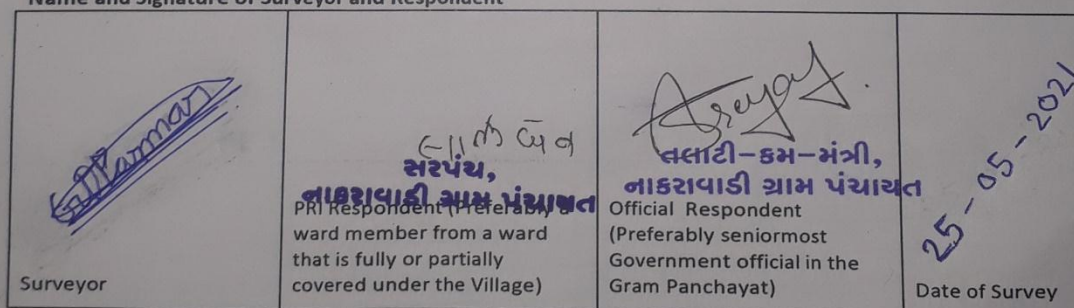 Name and Signature of Surveyor and Respondent
Surveyor
સરપંચ,
નાકરાવાડી ગ્રામ પંચાયત
PRI Respondent (Preferably a
ward member from a ward
that is fully or partially
covered under the Village)
તલાટી-કમ-મંત્રી,
નાકરાવાડી ગ્રામ પંચાયત
Official Respondent
(Preferably seniormost
Government official in the
Gram Panchayat)
25-05-2021
Date of Survey